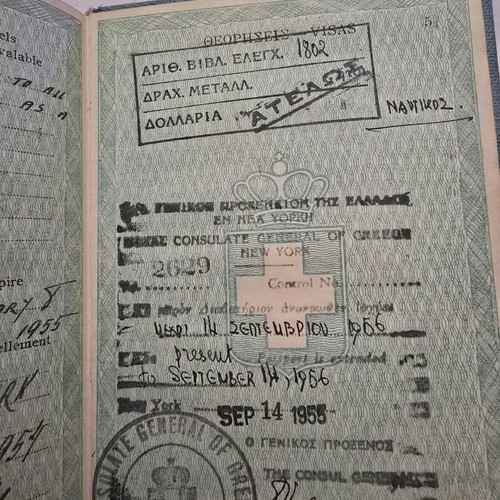 els
valable
TO ALL
AS A
pire
1955
ellement
1954
ΘΕΩΡΗΣΕΙΣ — VISAS
5
ΑΡΙΘ. ΒΙΒΛ. ΕΛΕΓΧ. 1802
ΔΡΑΧ. ΜΕΤΑΛΛ.
ΔΟΛΛΑΡΙΑ
ΑΤΕΛΩΣ
ΝΑΥΤΙΚΟΣ.
ΓΕΝΙΚΟΝ ΠΡΟΞΕΝΕΙΟΝ ΤΗΣ ΕΛΛΑΔΟΣ
ΕΝ ΝΕΑ ΥΟΡΚΗ
ROYAL CONSULATE GENERAL OF GREECE
NEW YORK
2629
Control No.
παρὸν Διαβατήριον ἀνανεωθὲν ἰσχύει
ΜΕΧΡΙ 14 ΣΕΠΤΕΜΒΡΙΟΥ 1956
present Passport is extended
to SEPTEMBER 14, 1956
York SEP 14 1955
Ο ΓΕΝΙΚΟΣ ΠΡΟΞΕΝΟΣ
THE CONSUL GENERAL
SULATE GENERAL OF GREE